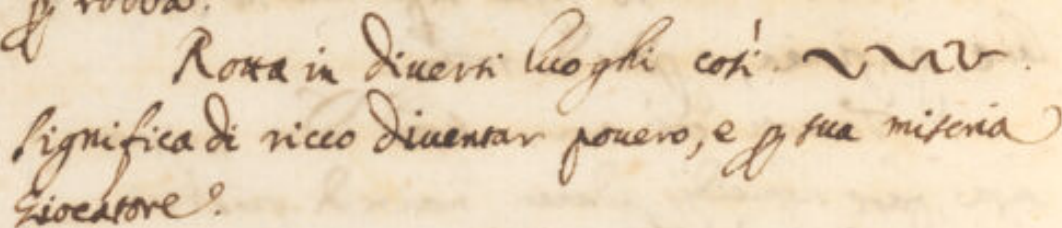 ꝑ robba.
Rotta in diuersi luoghi così.
significa di ricco diuentar pouero, e ꝑ sua miseria
giocatore.